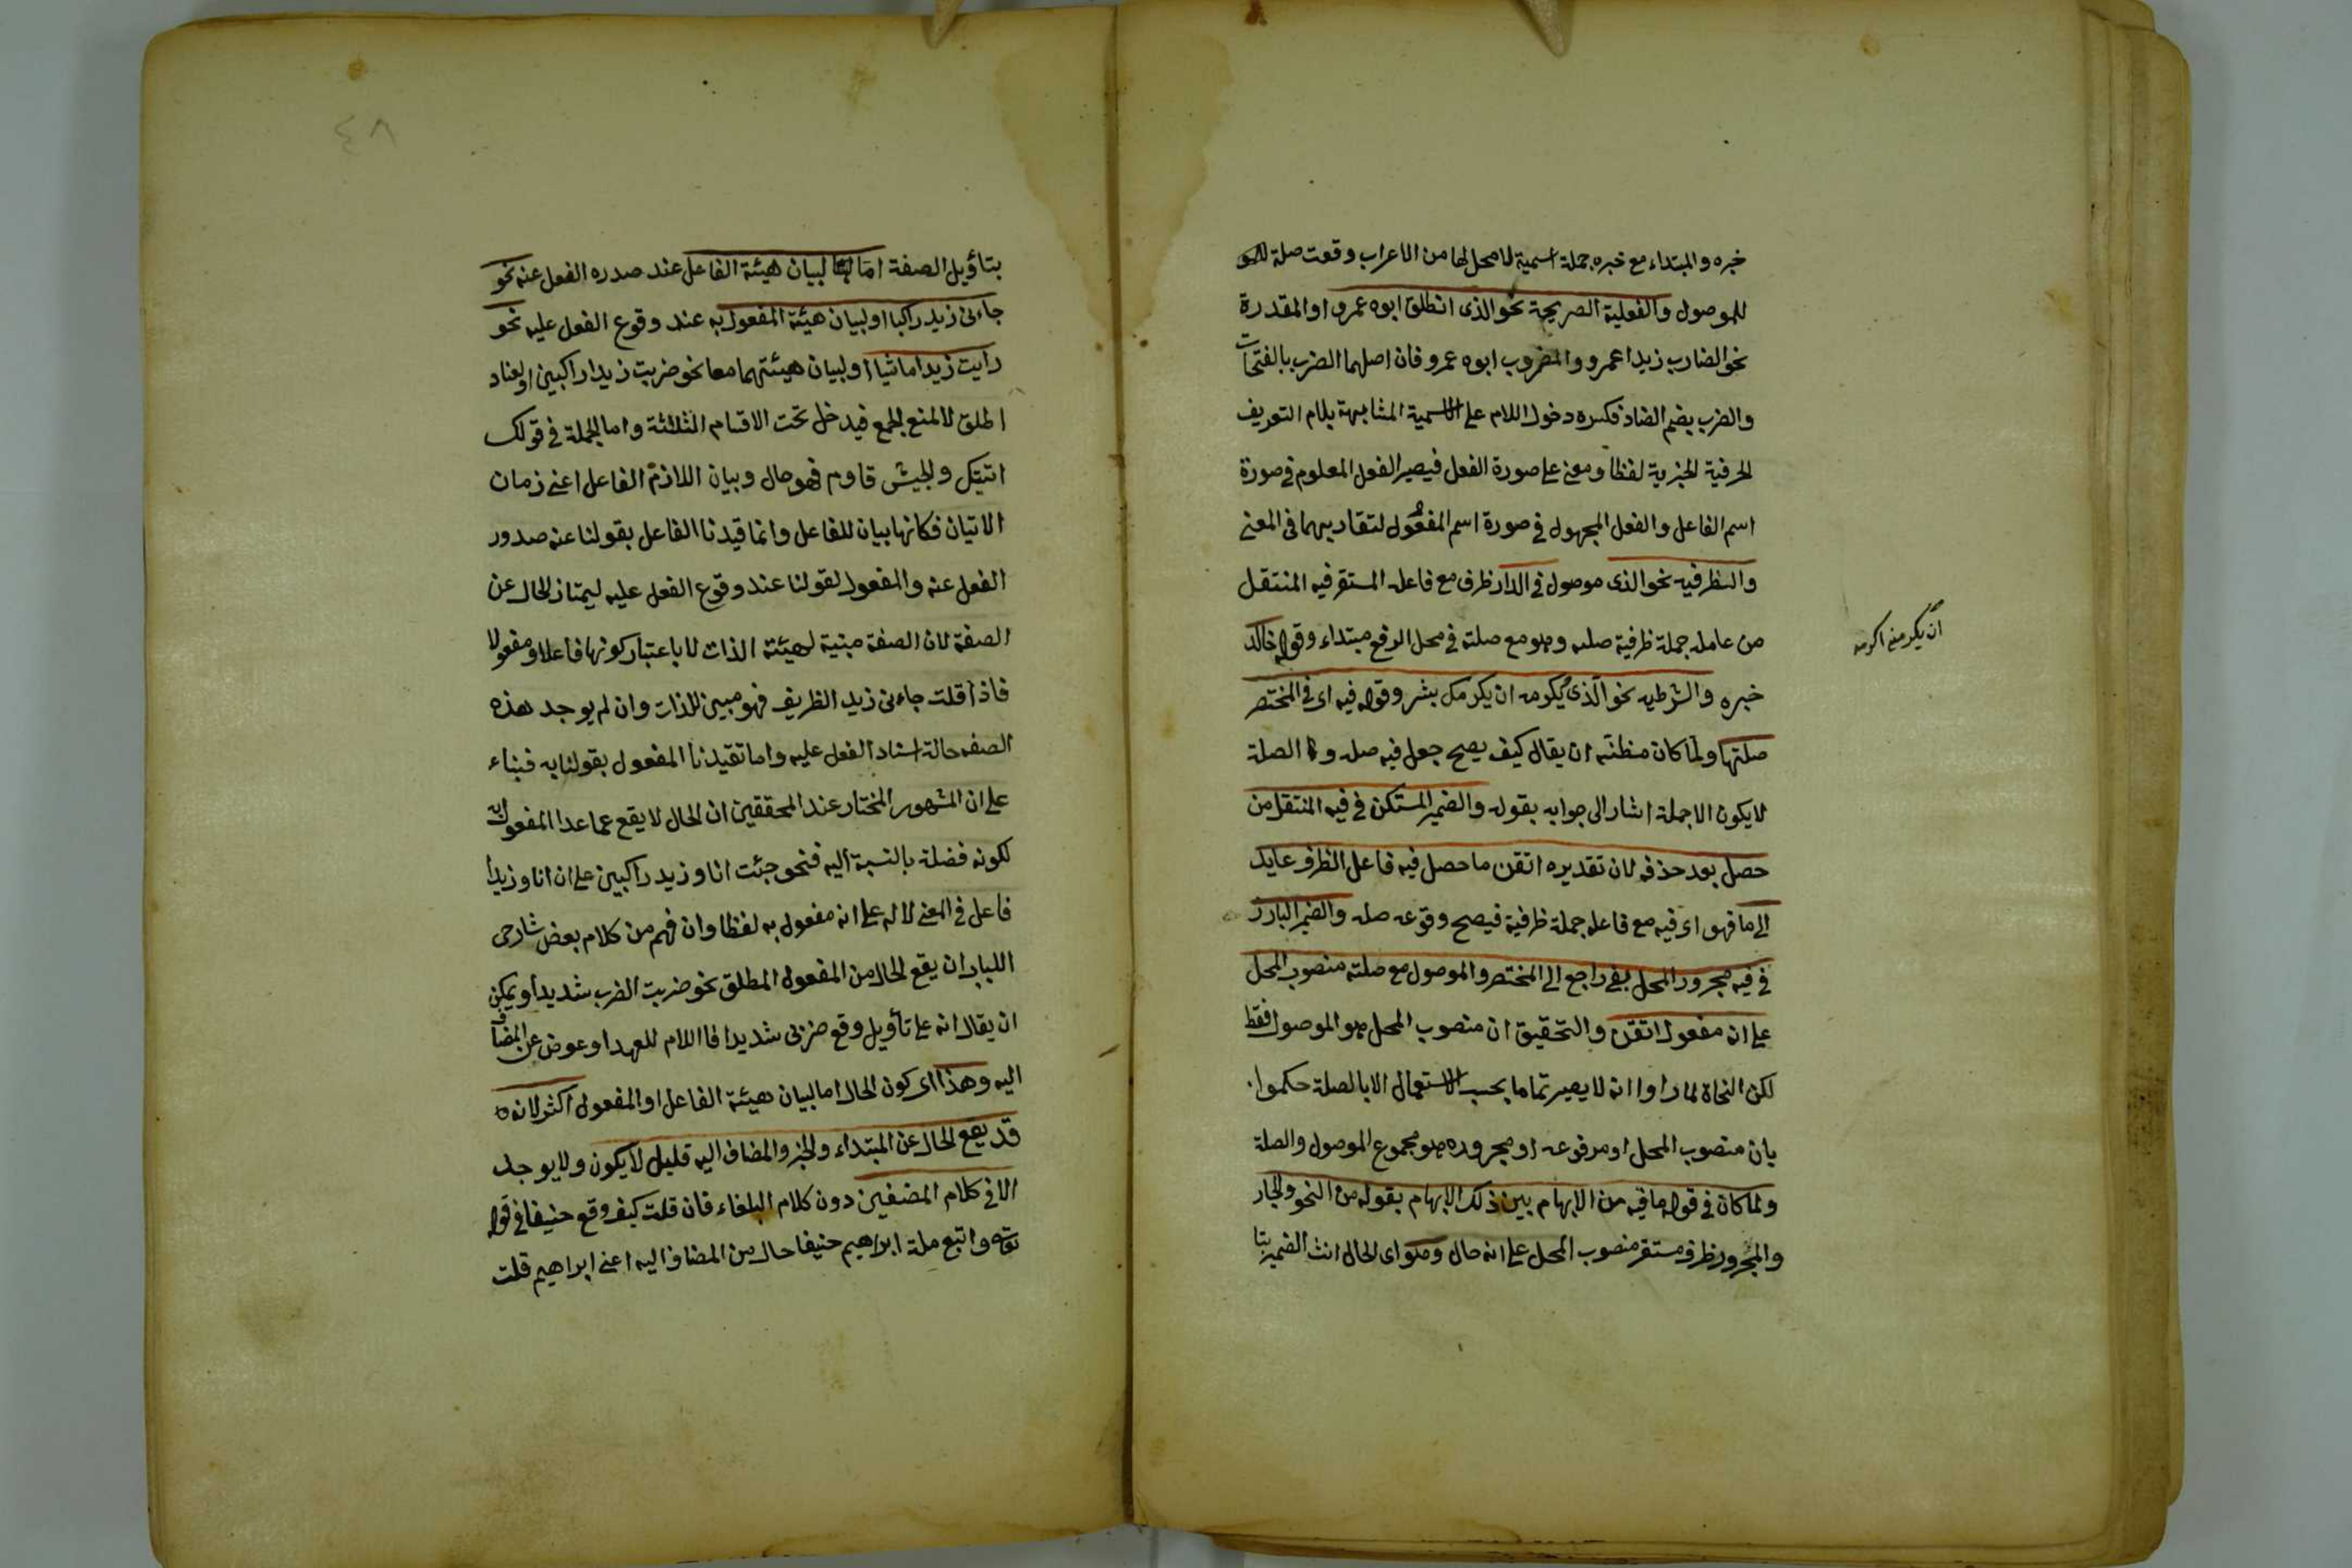 خبره والمبتداء مع خبره جملة اسمية لا محل لها من الاعراب وقعت صلة
للموصول والفعلية الصريحة نحو الذى انطلق ابوه عمرو او المقدرة
نحو الضارب زيدا عمرو والمضروب ابوه عمرو فان اصلهما الضرب بالفتحات
والضرب بضم الضاد فكسره دخول اللام على الاسمية المشابهة بلام التعريف
الحرفية الجزية لفظا ومعنى على صورة الفعل فيصير الفعل المعلوم فى صورة
اسم الفاعل والفعل المجهول فى صورة اسم المفعول لتقاربهما فى المعنى
والظرفيه نحو الذى موصول فى الدار ظرف مع فاعله المستقر فيه المنتقل
من عامله جملة ظرفية صلته وهو مع صلته فى محل الرفع مبتداء وقوله خالد
ان يكرمنى اكرمه
خبره والشرطيه نحو الذى يكرمه ان يكرمك بشر وقوله فيه اى فى المختصر
صلتها ولما كان مظنة ان يقال كيف يصح جعل فيه صله و الصلة
لا يكون الا جملة اشار الى جوابه بقوله والضمير المستكن فى فيه المنتقل من
حصل بعد حذفه لان تقديره اتقن ما حصل فيه فاعل الظرف عايد
الى ما فهو اى فيه مع فاعله جملة ظرفية فيصح وقوعه صله والضمير البارز
فى فيه مجرور المحل بفى راجع الى المختصر والموصول مع صلته منصوب المحل
على انه مفعول اتقن والتحقيق ان منصوب المحل هو الموصول فقط
لكن النحاة لما راوا انه لا يصير تماما بحسب الاستعمال الا بالصلة حكموا
بان منصوب المحل او مرفوعه او مجروره هو مجموع الموصول والصلة
ولما كان فى قوله ما فيه من الابهام بين ذلك الابهام بقوله من النحو والجار
والمجرور ظرف مستقر منصوب المحل على انه حال وهو اى الحال انث الضمير
٤٨
بتاؤيل الصفة اما لبيان هيئة الفاعل عند صدره الفعل عنه نحو
جاءنى زيد راكبا او لبيان هيئة المفعول به عند وقوع الفعل عليه نحو
رايت زيدا ماشيا او لبيان هيئتهما معا نحو ضربت زيدا راكبين او لعناد
اطلق لا لمنع الجمع فيدخل تحت الاقسام الثلثة واما الجملة فى قولك
اتيتك والجيش قادم فهو حال وبيان اللازم الفاعل اعنى زمان
الاتيان فكانها بيان للفاعل وانما قيدنا الفاعل بقولنا عند صدور
الفعل عنه والمفعول لقولنا عند وقوع الفعل عليه ليمتاز الحال عن
الصفة لان الصفة مبنية لهيئة الذات لا باعتبار كونها فاعلا ومفعولا
فاذا قلت جاءنى زيد الظريف فهو مبين للذات وان لم يوجد هذه
الصفه حالة اسناد الفعل عليه واما تقيدنا المفعول بقولنا به فبناء
على ان المشهور المختار عند المحققين ان الحال لا يقع عما عدا المفعول به
لكونه فضلة بالنسبة اليه فنحو جئت انا وزيد راكبين على ان انا وزيدا
فاعل فى المعنى لا له على انه مفعول به لفظا وان فهم من كلام بعض شارحى
اللباب ان يقع الحال من المفعول المطلق نحو ضربت الضرب شديدا ويمكن
ان يقال انه على تأويل وقع ضربى شديدا فااللام للعهد او عوض عن المضاف
اليه وهذا اى كون الحال اما لبيان هيئة الفاعل او المفعول اكثر لانه
قد يقع الحال عن المبتداء والخبر والمضاف اليه قليل لا يكون ولا يوجد
الا فى كلام المصنفين دون كلام البلغاء فان قلت كيف وقع حنيفا فى قوله
تعالى واتبع ملة ابراهيم حنيفا حال من المضاف اليه اعنى ابراهيم قلت